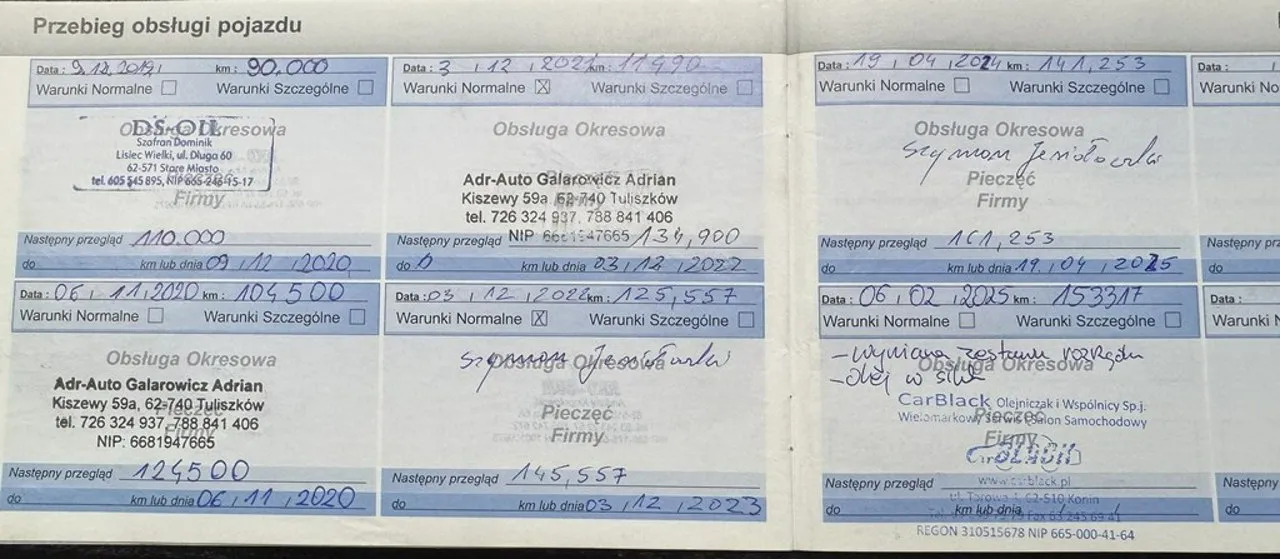 Przebieg obsługi pojazdu
Data : 9.12.2019, km : 90.000
Warunki Normalne Warunki Szczególne
Obsługa Okresowa
DS-OIL
Szafran Dominik
Lisiec Wielki, ul. Długa 60
62-571 Stare Miasto
tel. 605 545 895, NIP 665-246-15-17
Pieczęć
Firmy
Następny przegląd 110.000
do km lub dnia 09, 12, 2020
Data : 06, 11, 2020 km : 104500
Warunki Normalne Warunki Szczególne
Obsługa Okresowa
Adr-Auto Galarowicz Adrian
Kiszewy 59a, 62-740 Tuliszków
Pieczęć
tel. 726 324 937, 788 841 406
Firmy
NIP: 6681947665
Następny przegląd 124500
do km lub dnia 06, 11, 2020
Data : 3, 12, 2021 km :
Warunki Normalne X Warunki Szczególne
Obsługa Okresowa
Adr-Auto Galarowicz Adrian
Kiszewy 59a, 62-740 Tuliszków
tel. 726 324 937, 788 841 406
NIP 6681947665
Następny przegląd 134,900
do km lub dnia 03, 12, 2022
Data : 03, 12, 2022 km : 125,557
Warunki Normalne X Warunki Szczególne
Obsługa Okresowa
Szymon
Pieczęć
Firmy
Następny przegląd 145,557
do km lub dnia 03, 12, 2023
Data : 19, 04, 2024 km : 141,253
Warunki Normalne Warunki Szczególne
Obsługa Okresowa
Szymon
Pieczęć
Firmy
Następny przegląd 161,253
do km lub dnia 19, 04, 2025
Data : 06, 02, 2025 km : 153317
Warunki Normalne Warunki Szczególne
- wymiana zestawu rozrządu
Obsługa Okresowa
- olej w silni
CarBlack Olejniczak i Wspólnicy Sp.j.
Wielomarkowy Serwis i Salon Samochodowy
Pieczęć
Firmy
CarBLACK
Następny przegląd www.carblack.pl
ul. Torowa 62-510 Konin
do km lub dnia
REGON 310515678 NIP 665-000-41-64
Data :
Warunki No
Następny prz
do
Data :
Warunki N
Następny
do